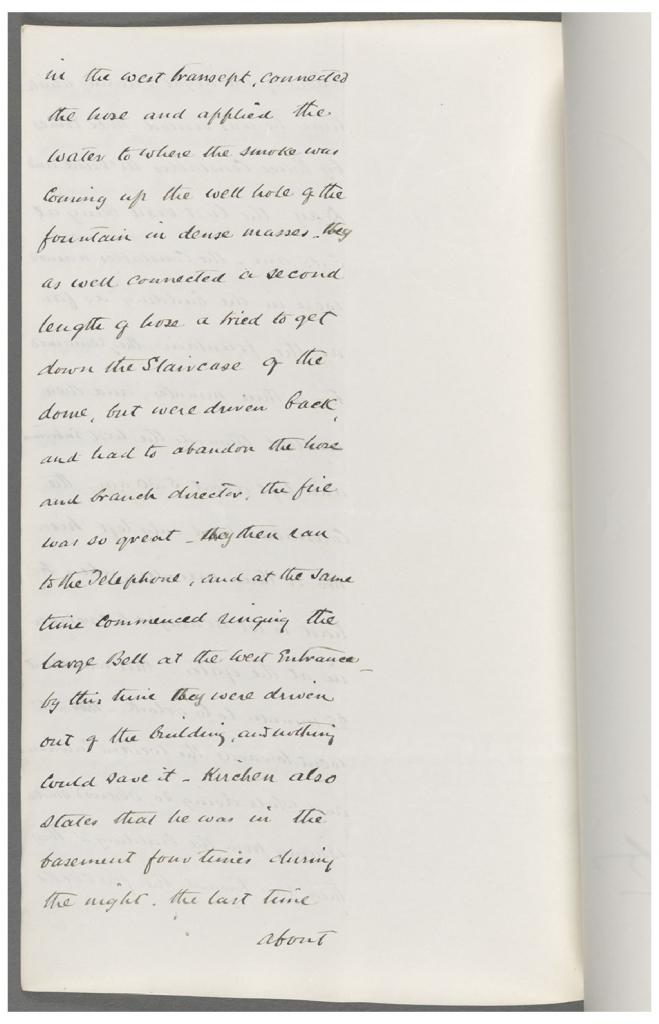 in the west transept, connected
the hose and applied the
water to where the smoke was
coming up the well hole of the
fountain in dense masses. they
as well connected a second
length of hose & tried to get
down the Staircase of the
dome, but were driven back,
and had to abandon the hose
and branch director, the fire
was so great - they then ran
to the Telephone, and at the same
time commenced ringing the
large Bell at the West Entrance -
by this time they were driven
out of the building, and nothing
could save it - Kirchen also
states that he was in the
basement four times during
the night. the last time
about